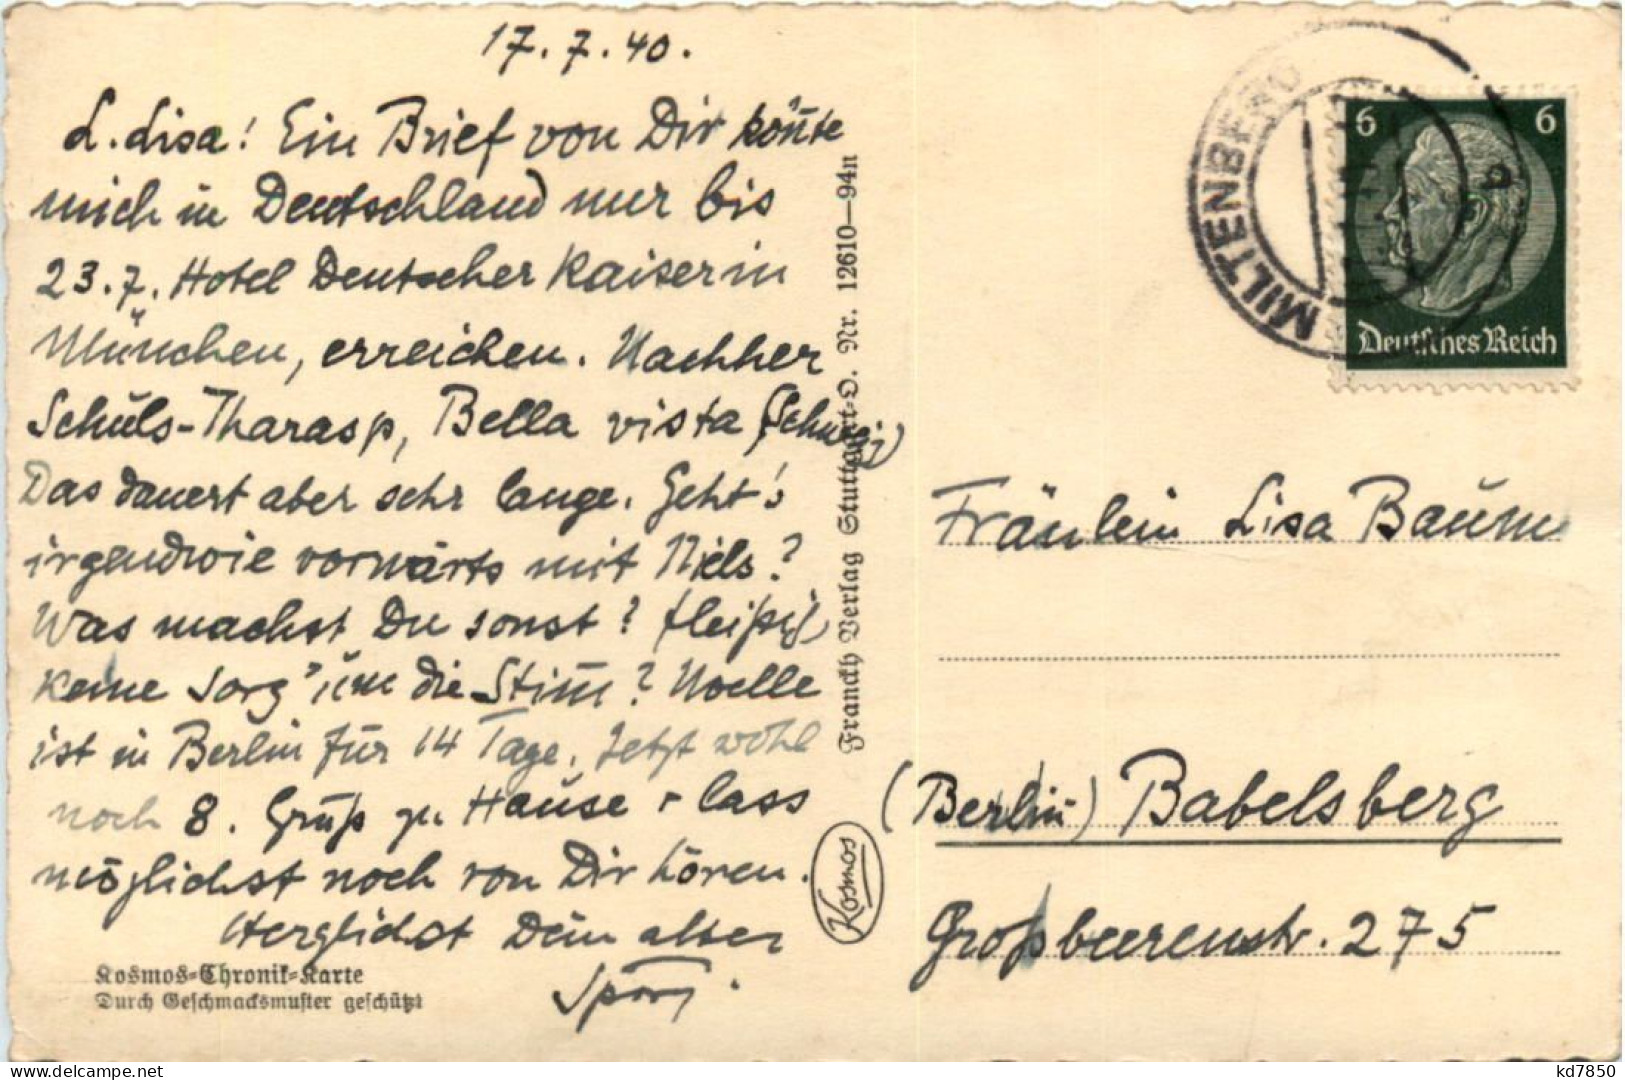 17.7.40.
L. Lisa! Ein Brief von Dir kön̄te
mich in Deutschland nur bis
23.7. Hotel Deutscher Kaiser in
München, erreichen. Nachher
Schuls-Tharasp, Bella vista (Schweiz)
Das dauert aber sehr lange. Geht's
irgendwie vorwärts mit Niels?
Was machst Du sonst? fleißig,
keine Sorg' um die Stim̄? Noelle
ist in Berlin für 14 Tage. Jetzt wohl
noch 8. Gruß zu Hause + lass
möglichst noch von Dir hören.
Herzlichst Dein alter
Kosmos-Chronik-Karte
Durch Geschmacksmuster geschützt
Franckh Verlag Stuttgart-O. Nr. 12610—94n
Kosmos
MILTENBERG
6 6
Deutsches Reich
Fräulein Lisa Baum
(Berlin) Babelsberg
Großbeerenstr. 275
kosmos.delcampe.net
kd7850